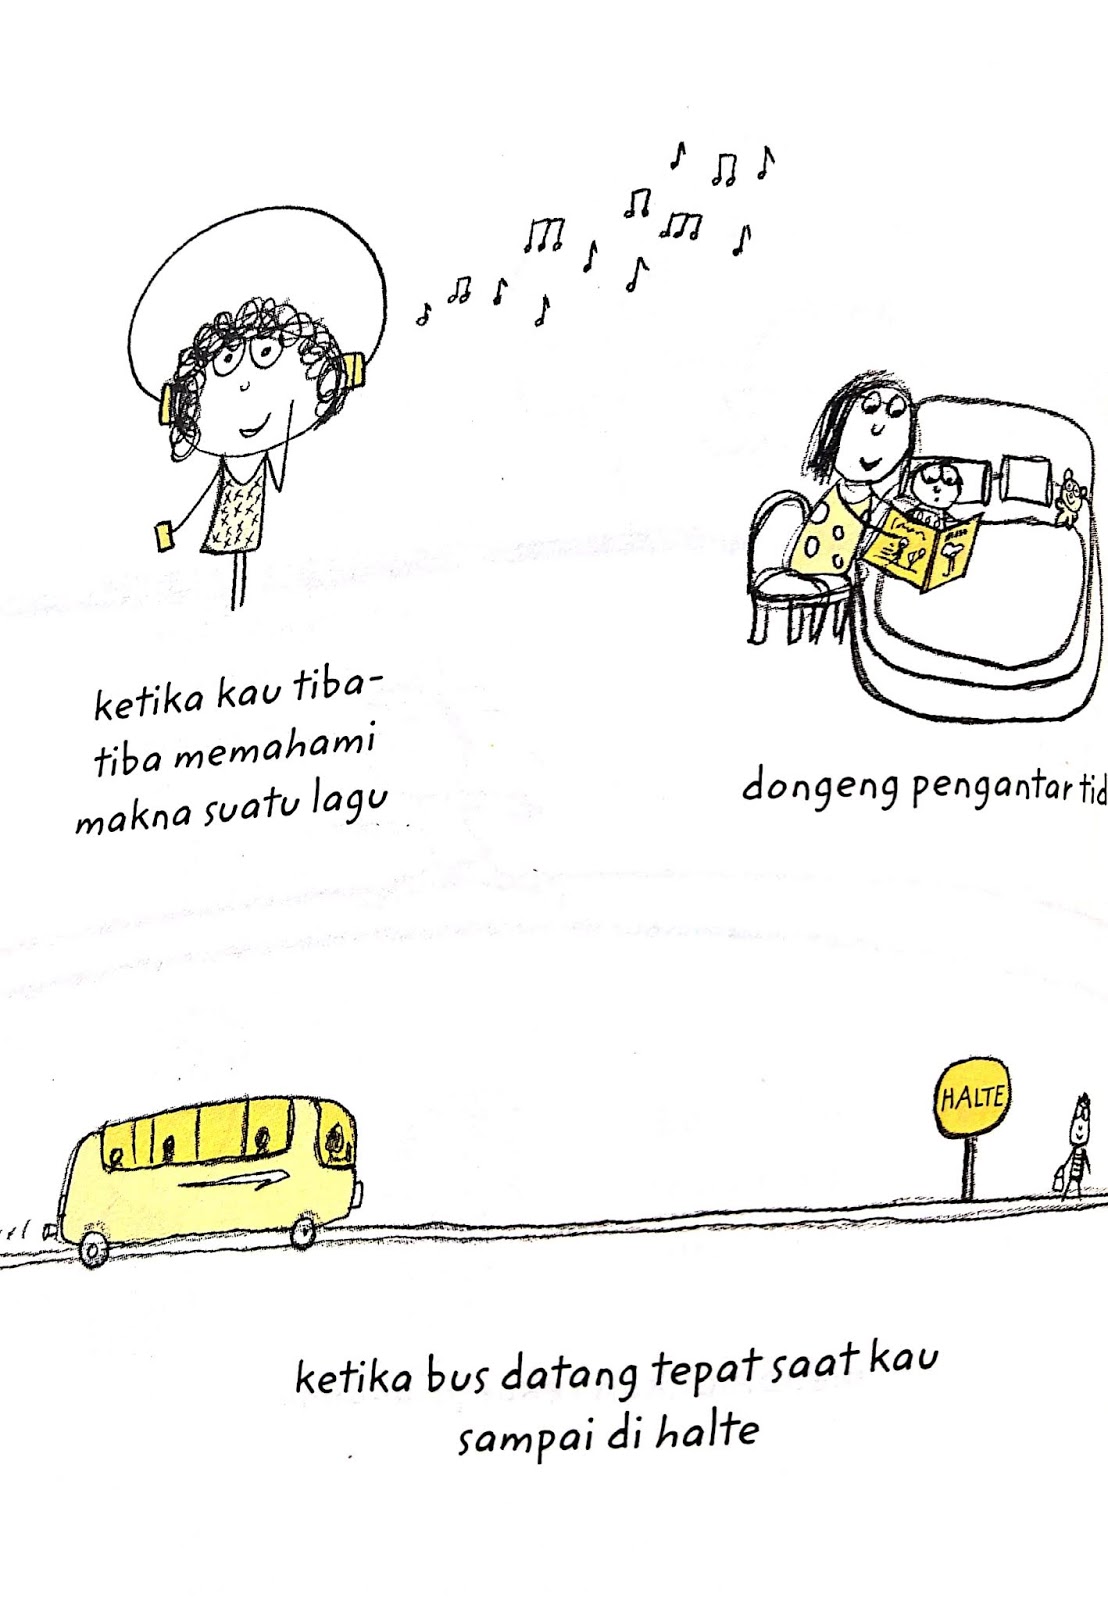 ketika kau tiba-
tiba memahami
makna suatu lagu
dongeng pengantar tid
HALTE
ketika bus datang tepat saat kau
sampai di halte